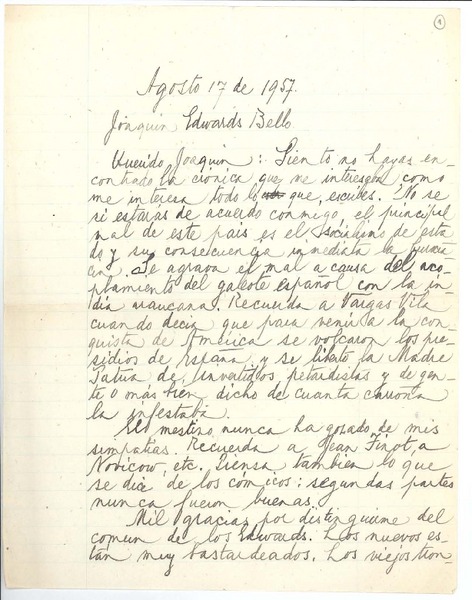 1
Agosto 17 de 1957.
Joaquin Edwards Bello
Querido Joaquin: Siento no hayas en-
contrado la crónica que me interesaba como
me interesa todo lo que escribes. No se
si estarás de acuerdo conmigo, el principal
mal de este pais es el socialismo de esta
do y su consecuencia inmediata la
Se agrava el mal a causa del aco-
plamiento del galeote español con la in-
dia araucana. Recuerda a Vargas Vila
cuando decia que para venir a la con-
quista de América se volcaron los pre-
sidios de España y se libertó la Madre
Patria de invertidos, petardistas y de gen-
te o más bien dicho de cuanta carroña
la infestaba.
Lo mestizo nunca ha gozado de mis
simpatias. Recuerda a Jean Finot, a
Novicow, etc. Piensa tambien lo que
se dice de los cómicos: segundas partes
nunca fueron buenas.
Mil gracias por distinguirme del
comun de los Edwards. Los nuevos es-
tán muy bastardeados. Los viejos tron-